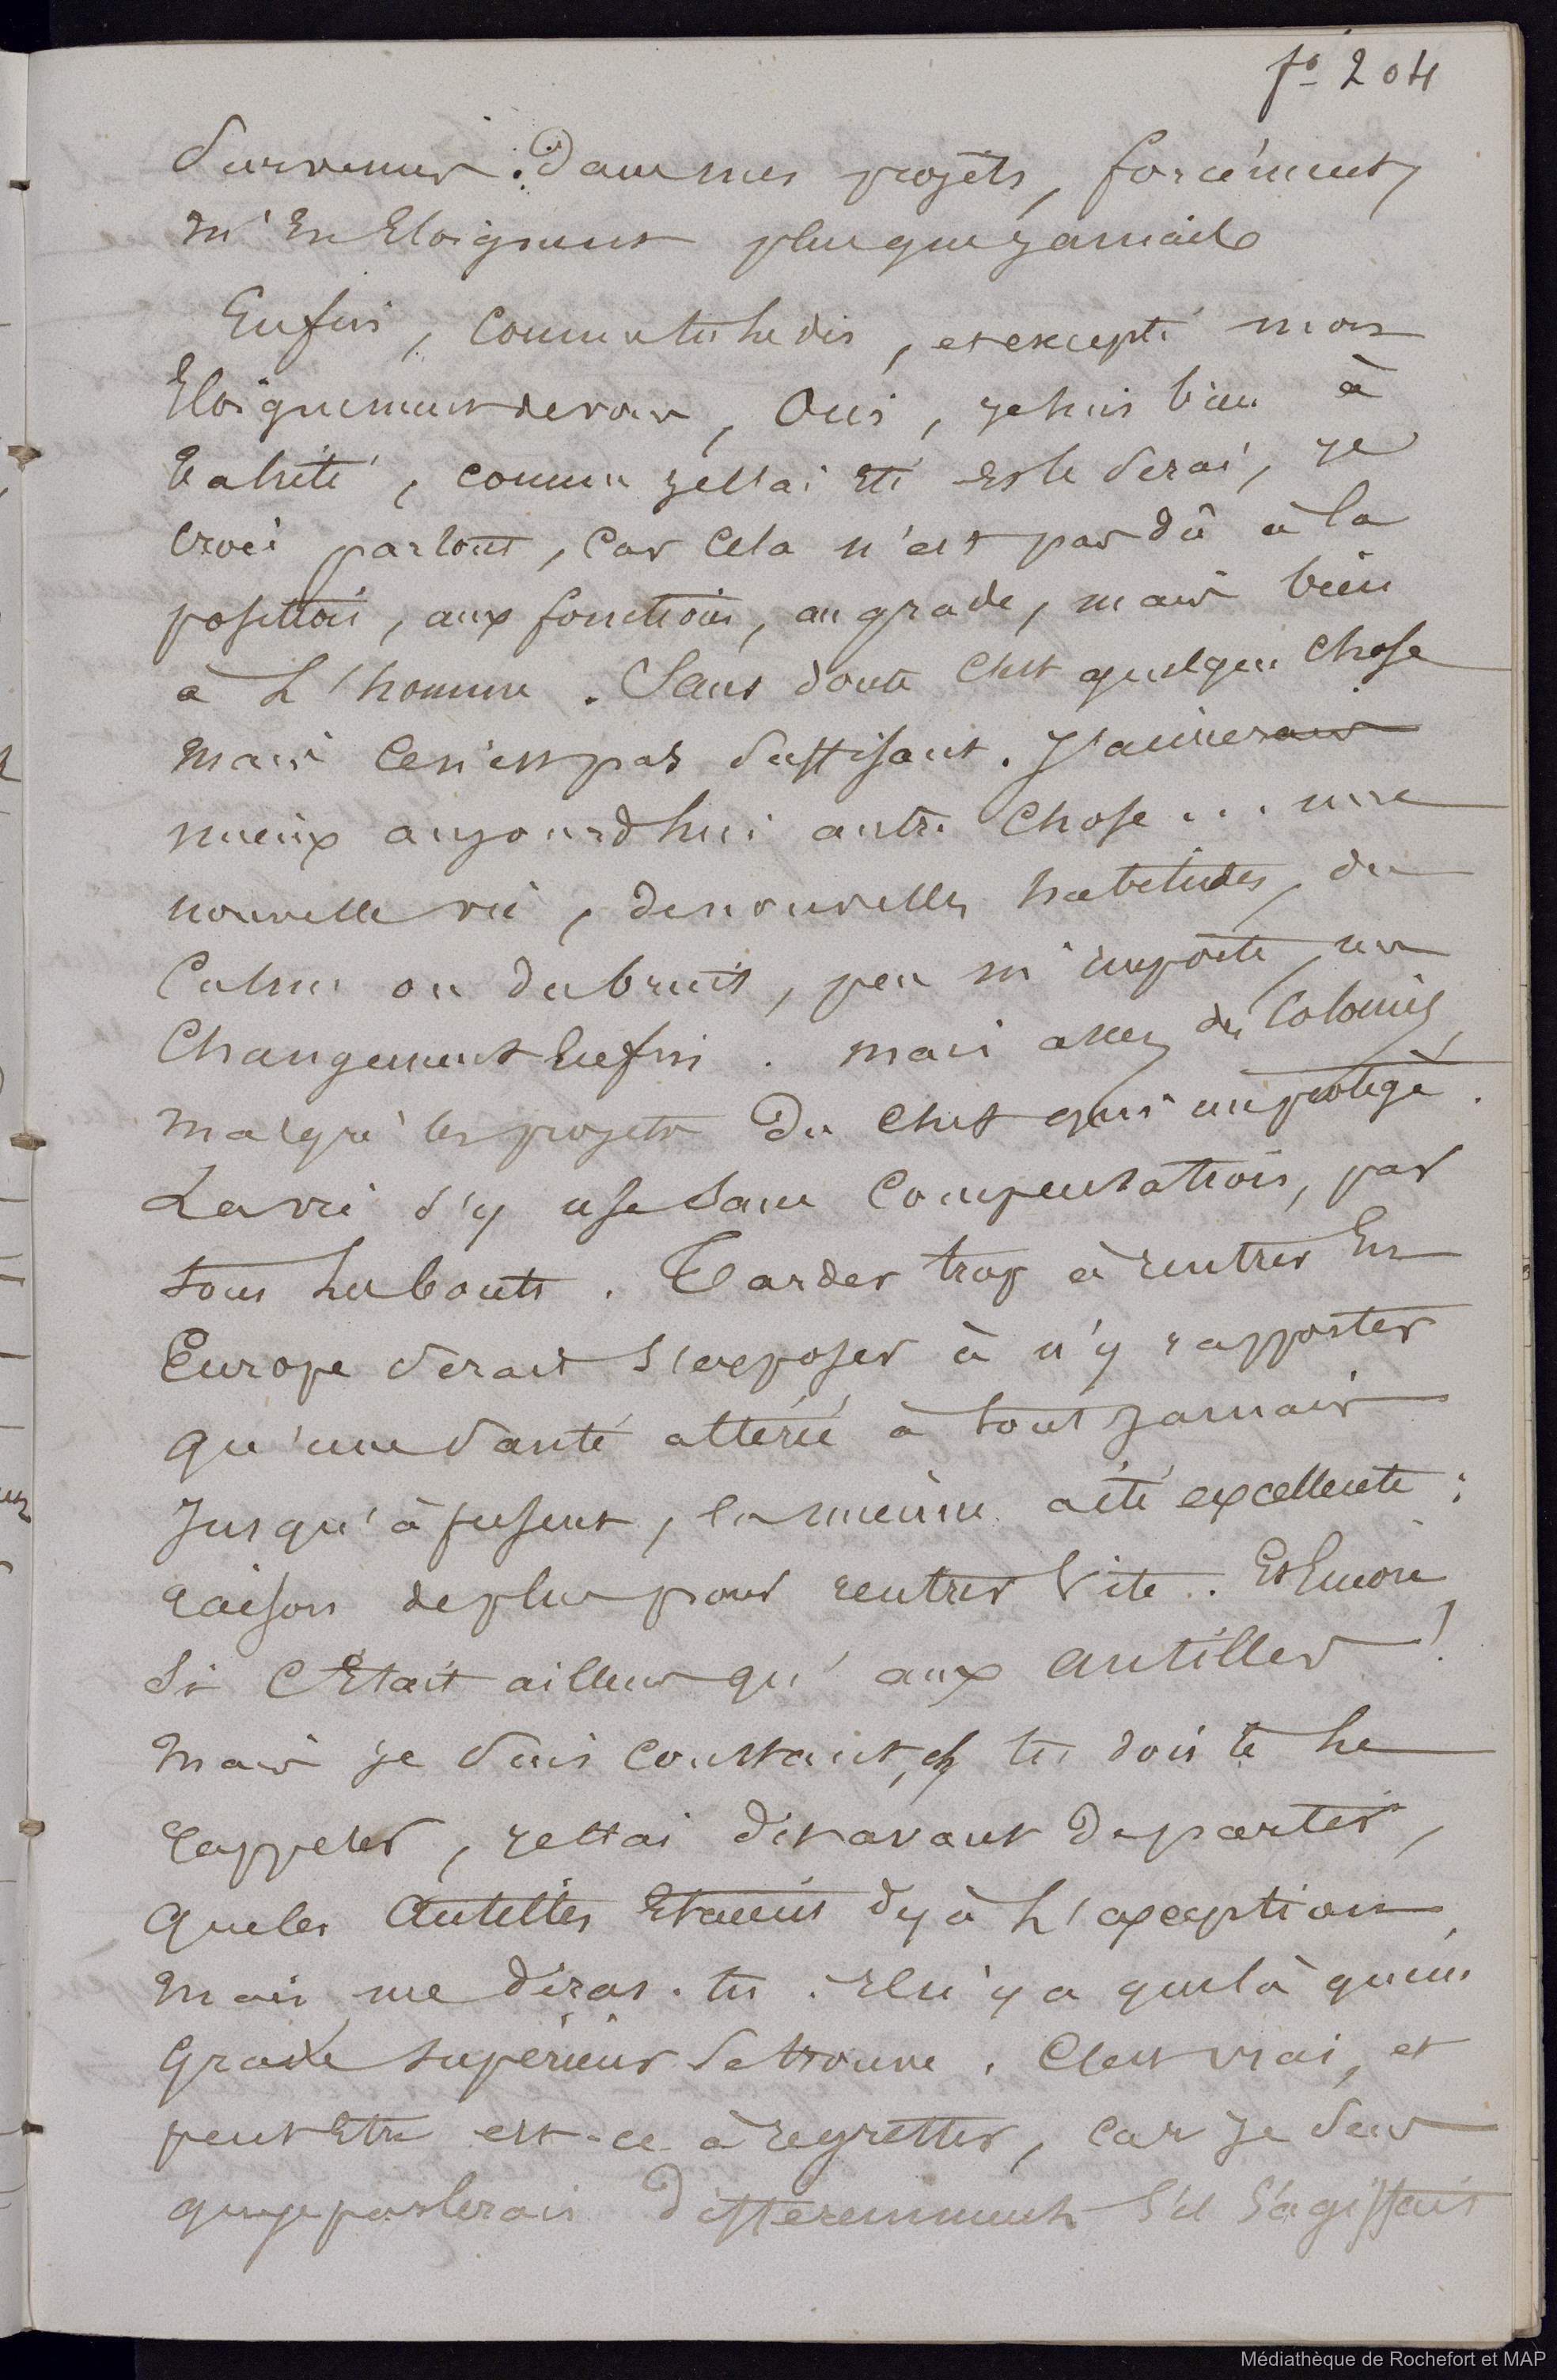 fo 204
Survenus. Dans mes projets, forcément,
m'en Eloignent plus que jamais
Enfin, Comme tu le dis, et excepté mon
Eloignement de vous, Oui, je suis bien à
Tahiti, comme je l'ai été et le serai, je
crois partout, Car Cela n'est pas dû à la
position, aux fonctions, au grade, mais bien
à L'homme. Sans doute C'est quelque chose
mais Ce n'est pas suffisant. J'aimerais
mieux aujourdhui autre Chose... une
nouvelle vie, de nouvelles habitudes, du
Calme ou du bruit, peu m'importe, un
Changement Enfin. mais assez des Colonies,
malgré les projets du Chef qui me protège.
La vie s'y use Sans Compensation, par
tous les bouts. Tarder trop à rentrer En
Europe serait s'exposer à n'y rapporter
qu'une Santé altérée à tout jamais
Jusqu'à présent, la mienne a été excellente;
raison de plus pour rentrer Vite. Et Encore
Si C'Etait ailleurs qu'aux Antilles!
mais je suis Constant, tu dois te le
rappeler, je t'ai dit avant de partir,
que les Antilles Etaient déjà L'exception,
mais, me diras-tu. Il n'y a que là qu'un
Grade supérieur se trouve. C'est vrai, et
peut Etre est-ce à regretter, Car je sens
que je parlerais différemment S'il S'agissait
Médiathèque de Rochefort et MAP